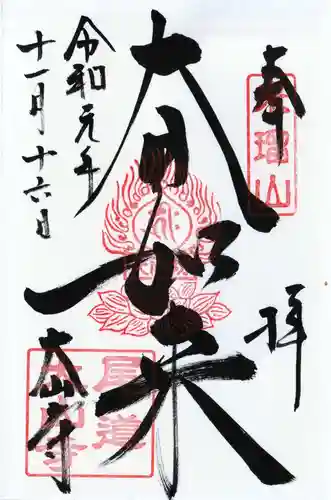 奉拝
大日如来
令和元年
十一月十六日
大山寺
瑠山
尾道